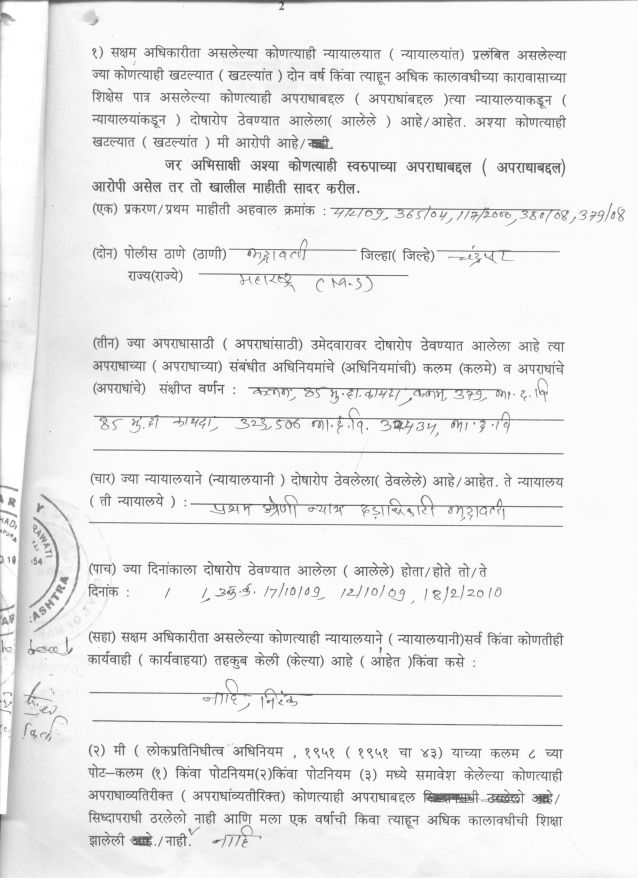 2
१) सक्षम अधिकारीता असलेल्या कोणत्याही न्यायालयात ( न्यायालयांत) प्रलंबित असलेल्या
ज्या कोणत्याही खटल्यात ( खटल्यांत ) दोन वर्ष किंवा त्याहून अधिक कालावधीच्या कारावासाच्या
शिक्षेस पात्र असलेल्या कोणत्याही अपराधाबद्दल ( अपराधांबद्दल )त्या न्यायालयाकडून (
न्यायालयांकडून ) दोषारोप ठेवण्यात आलेला( आलेले ) आहे/आहेत. अश्या कोणत्याही
खटल्यात ( खटल्यांत ) मी आरोपी आहे/नाही.
जर अभिसाक्षी अश्या कोणत्याही स्वरुपाच्या अपराधाबद्दल ( अपराधाबद्दल)
आरोपी असेल तर तो खालील माहीती सादर करील.
(एक) प्रकरण/प्रथम माहीती अहवाल क्रमांक : 365/04, 117/2000, 380/08, 379/08
(दोन) पोलीस ठाणे (ठाणी) भद्रावती जिल्हा( जिल्हे) चंद्रपूर
राज्य(राज्ये) महाराष्ट्र (M.S)
(तीन) ज्या अपराधासाठी ( अपराधांसाठी) उमेदवारावर दोषारोप ठेवण्यात आलेला आहे त्या
अपराधाच्या ( अपराधाच्या) संबंधीत अधिनियमांचे (अधिनियमांची) कलम (कलमे) व अपराधांचे
(अपराधांचे) संक्षीप्त वर्णन : कलम, 85 मु.दा.कायदा, कलम, 379, भा.द.वि
85 मु.दा कायदा, 323, 506 भा.द.वि. भा.द.वि
(चार) ज्या न्यायालयाने (न्यायालयानी ) दोषारोप ठेवलेला( ठेवलेले) आहे/आहेत. ते न्यायालय
( ती न्यायालये ) : प्रथम श्रेणी न्याय दंडाधिकारी भद्रावती
(पाच) ज्या दिनांकाला दोषारोप ठेवण्यात आलेला ( आलेले) होता/होते तो/ते
दिनांक : / / 17/10/09, 12/10/09, 18/2/2010
(सहा) सक्षम अधिकारीता असलेल्या कोणत्याही न्यायालयाने ( न्यायालयानी)सर्व किंवा कोणतीही
कार्यवाही ( कार्यवाहया) तहकुब केली (केल्या) आहे ( आहेत )किंवा कसे :
नाहि, निरंक
(२) मी ( लोकप्रतिनिधीत्व अधिनियम , १९५१ ( १९५१ चा ४३) याच्या कलम ८ च्या
पोट–कलम (१) किंवा पोटनियम(२)किंवा पोटनियम (३) मध्ये समावेश केलेल्या कोणत्याही
अपराधाव्यतिरीक्त ( अपराधांव्यतिरिक्त) कोणत्याही अपराधाबद्दल सिध्दापराधी ठरलेलो आहे/
सिध्दापराधी ठरलेलो नाही आणि मला एक वर्षाची किवा त्याहून अधिक कालावधीची शिक्षा
झालेली आहे./नाही. नाहि